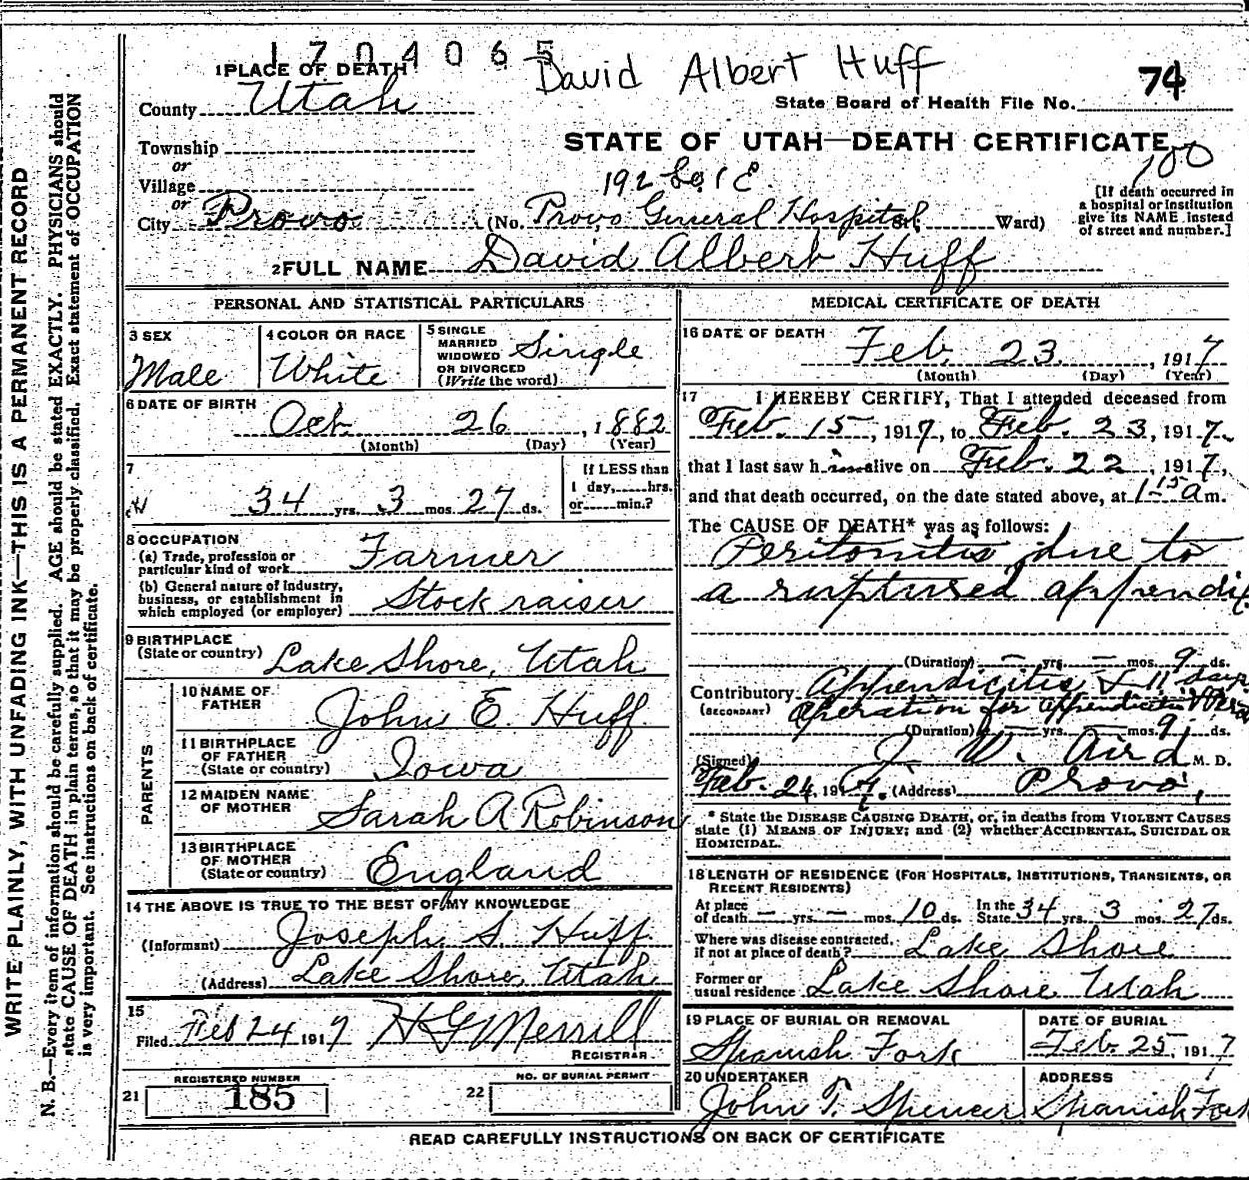 1704065
David Albert Huff
74
1 PLACE OF DEATH
County Utah
State Board of Health File No.
Township
STATE OF UTAH—DEATH CERTIFICATE
or
Village
192 So 1 E
100
or
City Provo (No. Provo General Hospital St, Ward)
[If death occurred in
a hospital or institution
give its NAME instead
of street and number.]
2 FULL NAME David Albert Huff
PERSONAL AND STATISTICAL PARTICULARS
3 SEX
Male
4 COLOR OR RACE
White
5 SINGLE
MARRIED
WIDOWED
OR DIVORCED
(Write the word)
Single
6 DATE OF BIRTH
Oct. 26, 1882
(Month) (Day) (Year)
7
34 yrs. 3 mos. 27 ds.
If LESS than
1 day, hrs.
or min.?
8 OCCUPATION
(a) Trade, profession or
particular kind of work Farmer
(b) General nature of industry,
business, or establishment in
which employed (or employer) Stock raiser
9 BIRTHPLACE
(State or country) Lake Shore, Utah
PARENTS
10 NAME OF
FATHER John E. Huff
11 BIRTHPLACE
OF FATHER
(State or country) Iowa
12 MAIDEN NAME
OF MOTHER Sarah A Robinson
13 BIRTHPLACE
OF MOTHER
(State or country) England
14 THE ABOVE IS TRUE TO THE BEST OF MY KNOWLEDGE
(Informant) Joseph S. Huff
(Address) Lake Shore, Utah
15
Filed Feb 24 1917 H G Merrill
REGISTRAR
21 REGISTERED NUMBER
185
22 NO. OF BURIAL PERMIT
MEDICAL CERTIFICATE OF DEATH
16 DATE OF DEATH
Feb. 23, 1917
(Month) (Day) (Year)
17 I HEREBY CERTIFY, That I attended deceased from
Feb. 15, 1917, to Feb. 23, 1917.
that I last saw him alive on Feb. 22, 1917,
and that death occurred, on the date stated above, at 1-15 a m.
The CAUSE OF DEATH* was as follows:
Peritonitis due to
a ruptured appendix
(Duration) — yrs. — mos. 9 ds.
Contributory Appendicitis 11 days
(SECONDARY) Operation for appendicitis
(Duration) — yrs. — mos. 9 ds.
(Signed) J. W. Aird M. D.
Feb. 24, 1917. (Address) Provo,
* State the DISEASE CAUSING DEATH, or, in deaths from VIOLENT CAUSES
state (1) MEANS OF INJURY; and (2) whether ACCIDENTAL, SUICIDAL OR
HOMICIDAL.
18 LENGTH OF RESIDENCE (FOR HOSPITALS, INSTITUTIONS, TRANSIENTS, OR
RECENT RESIDENTS)
At place
of death — yrs. — mos. 10 ds. In the State 34 yrs. 3 mos. 27 ds.
Where was disease contracted,
if not at place of death? Lake Shore
Former or
usual residence Lake Shore Utah
19 PLACE OF BURIAL OR REMOVAL
Spanish Fork
DATE OF BURIAL
Feb. 25, 1917
20 UNDERTAKER
John T. Spencer
ADDRESS
Spanish Fork
READ CAREFULLY INSTRUCTIONS ON BACK OF CERTIFICATE
WRITE PLAINLY, WITH UNFADING INK—THIS IS A PERMANENT RECORD
N. B.—Every item of information should be carefully supplied. AGE should be stated EXACTLY. PHYSICIANS should
state CAUSE OF DEATH in plain terms, so that it may be properly classified. Exact statement of OCCUPATION
is very important. See instructions on back of certificate.